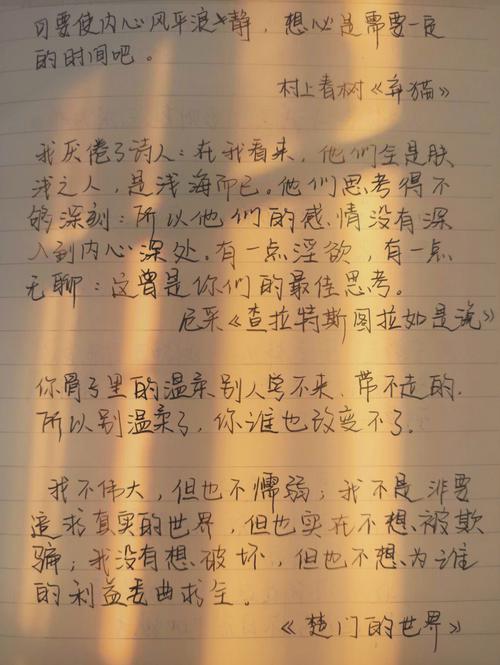 可要使内心风平浪静，想必是需要一定
的时间吧。
村上春树《弃猫》
我厌倦了诗人：在我看来，他们全是肤
浅之人，是浅海而已。他们思考得不
够深刻：所以他们的感情没有深
入到内心深处。有一点淫欲，有一点
无聊：这曾是你们的最佳思考。
尼采《查拉特斯图拉如是说》
你骨子里的温柔别人学不来、带不走的.
所以别温柔了，你谁也改变不了。
我不伟大，但也不懦弱；我不是非要
追求真实的世界，但也实在不想被欺
骗；我没有想破坏，但也不想为谁
的利益委曲求全。
《楚门的世界》